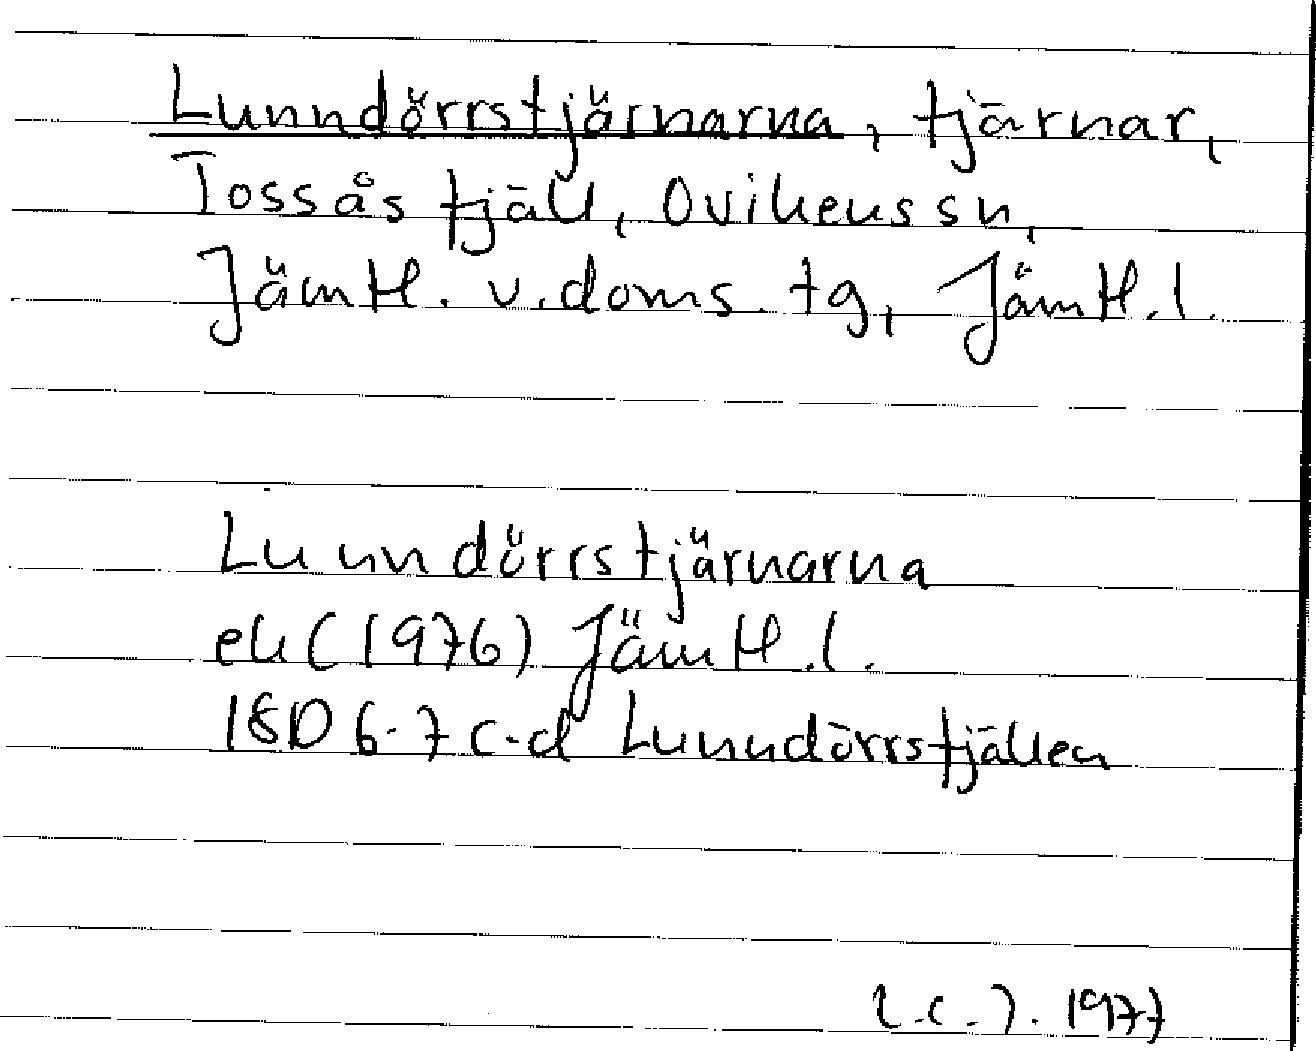 Lunndörrstjärnarna, tjärnar,
Tossåsfjäll, Ovikens sn,
Jämtl. v. doms. tg, Jämtl. l.
Lunndörrstjärnarna
ek (1976) Jämtl. l.
18D 6-7 c-d Lunndörrsfjällen
1977